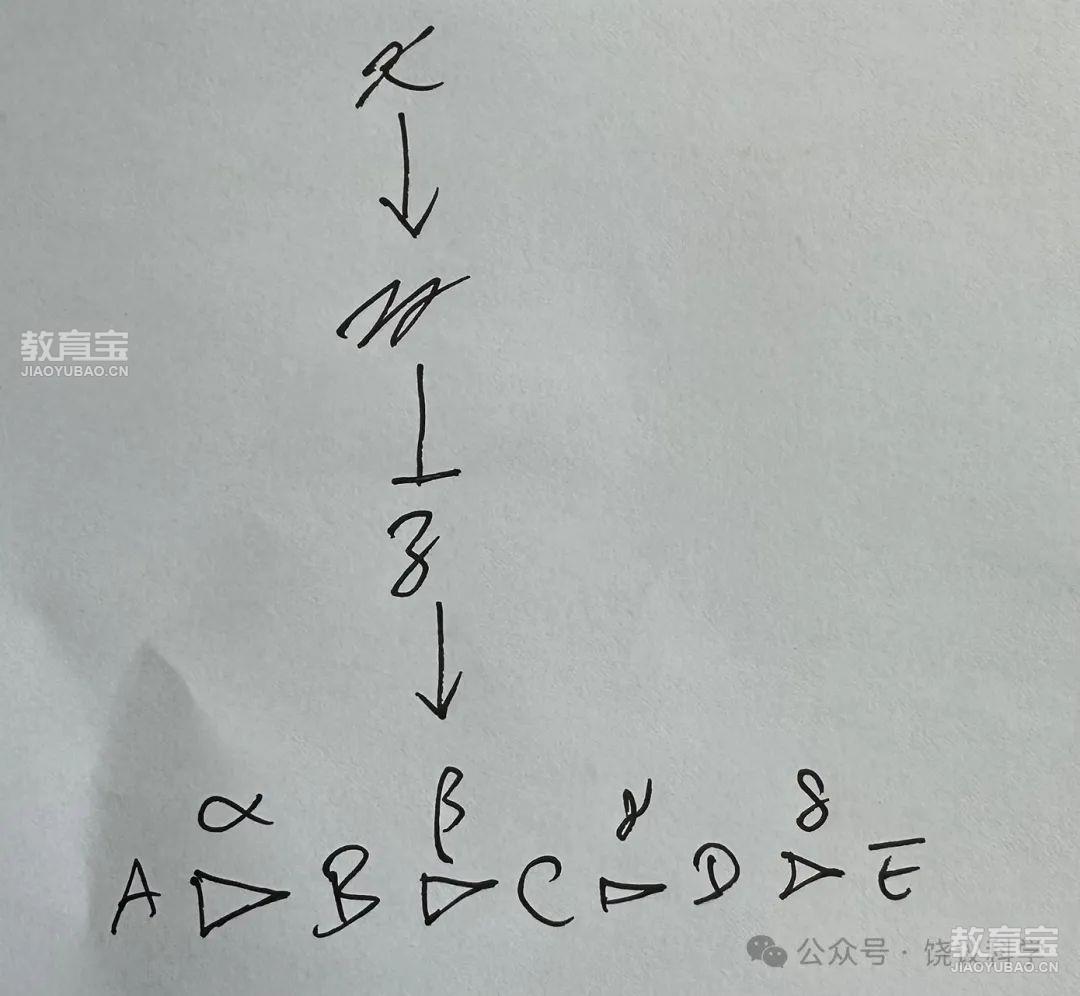 x
y
z
α β γ δ
A B C D E
教育宝
JIAOYUBAO.CN
公众号·饶
教育宝
JIAOYUBAO.CN